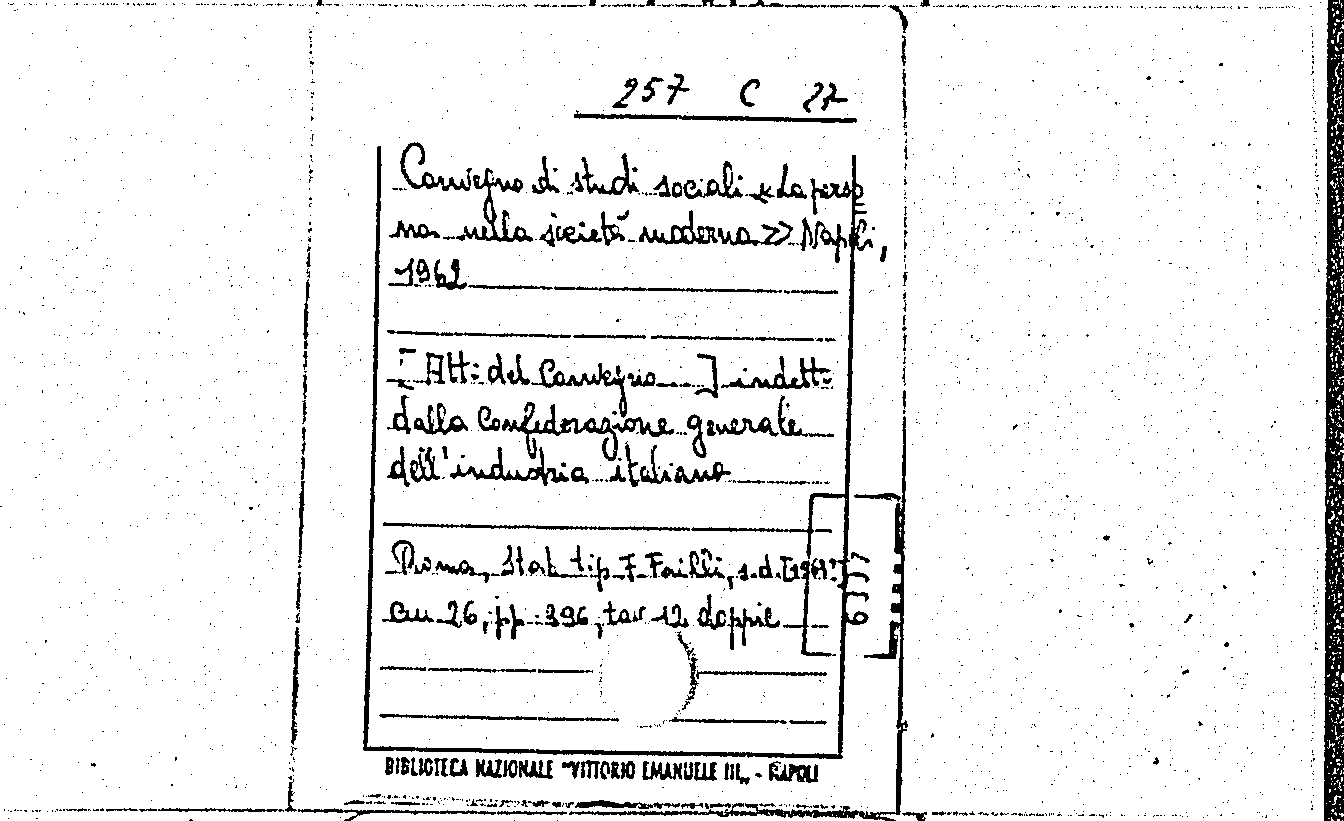 257 C 27
Convegno di studi sociali « La perso
na nella società moderna » Napoli,
1962
[Atti del Convegno ] indett.
dalla Confederazione generale
dell'industria italiana
Roma, Stab. tip. F. Failli, s.d. [196?]
cm 26, pp. 396, tav 12 doppie
BIBLIOTECA NAZIONALE "VITTORIO EMANUELE III„ - NAPOLI